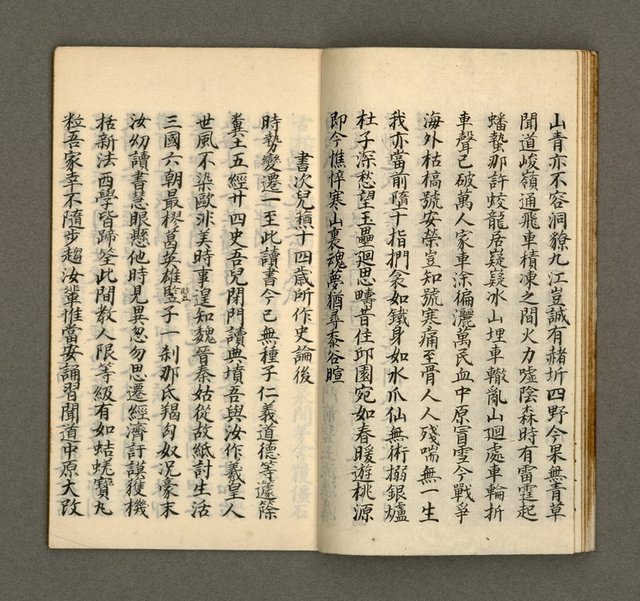 山青亦不容洞獠九江豈誠有赭圻四野今果無青草
聞道峻嶺通飛車積凍之間火力噓陰森時有雷霆起
蟠蟄那許蛟龍居嶷嶷冰山埋車轍亂山迴處車輪折
車聲已破萬人家車涂徧灑萬民血中原盲雪今戰爭
海外枯槁號安榮豈知號寒痛至骨人人殘喘無一生
我亦當前墮十指捫衾如鐵身如水爪仙無術搦銀爐
杜子深愁望玉壘迴思疇昔住邱園宛如春暖遊桃源
即今憔悴寒山裏魂夢猶尋黍谷暄
書次兒穮十四歲所作史論後
時勢變遷一至此讀書今已無種子仁義道德等籧篨
糞土五經廿四史吾兒閉門讀典墳吾與汝作羲皇人
世風不染歐非美時事遑知魏晉秦姑從故紙討生活
三國六朝最樛葛英雄豎子一剎那氏羯匈奴況豪末
汝幼讀書慧眼懸他時見異忽勿思遷經濟訏謨獲機
括新法西學皆蹄筌此間教人限等級有如蛣蜣寶丸
粒吾家幸不隨步趨汝輩惟當安誦習聞道中原大改